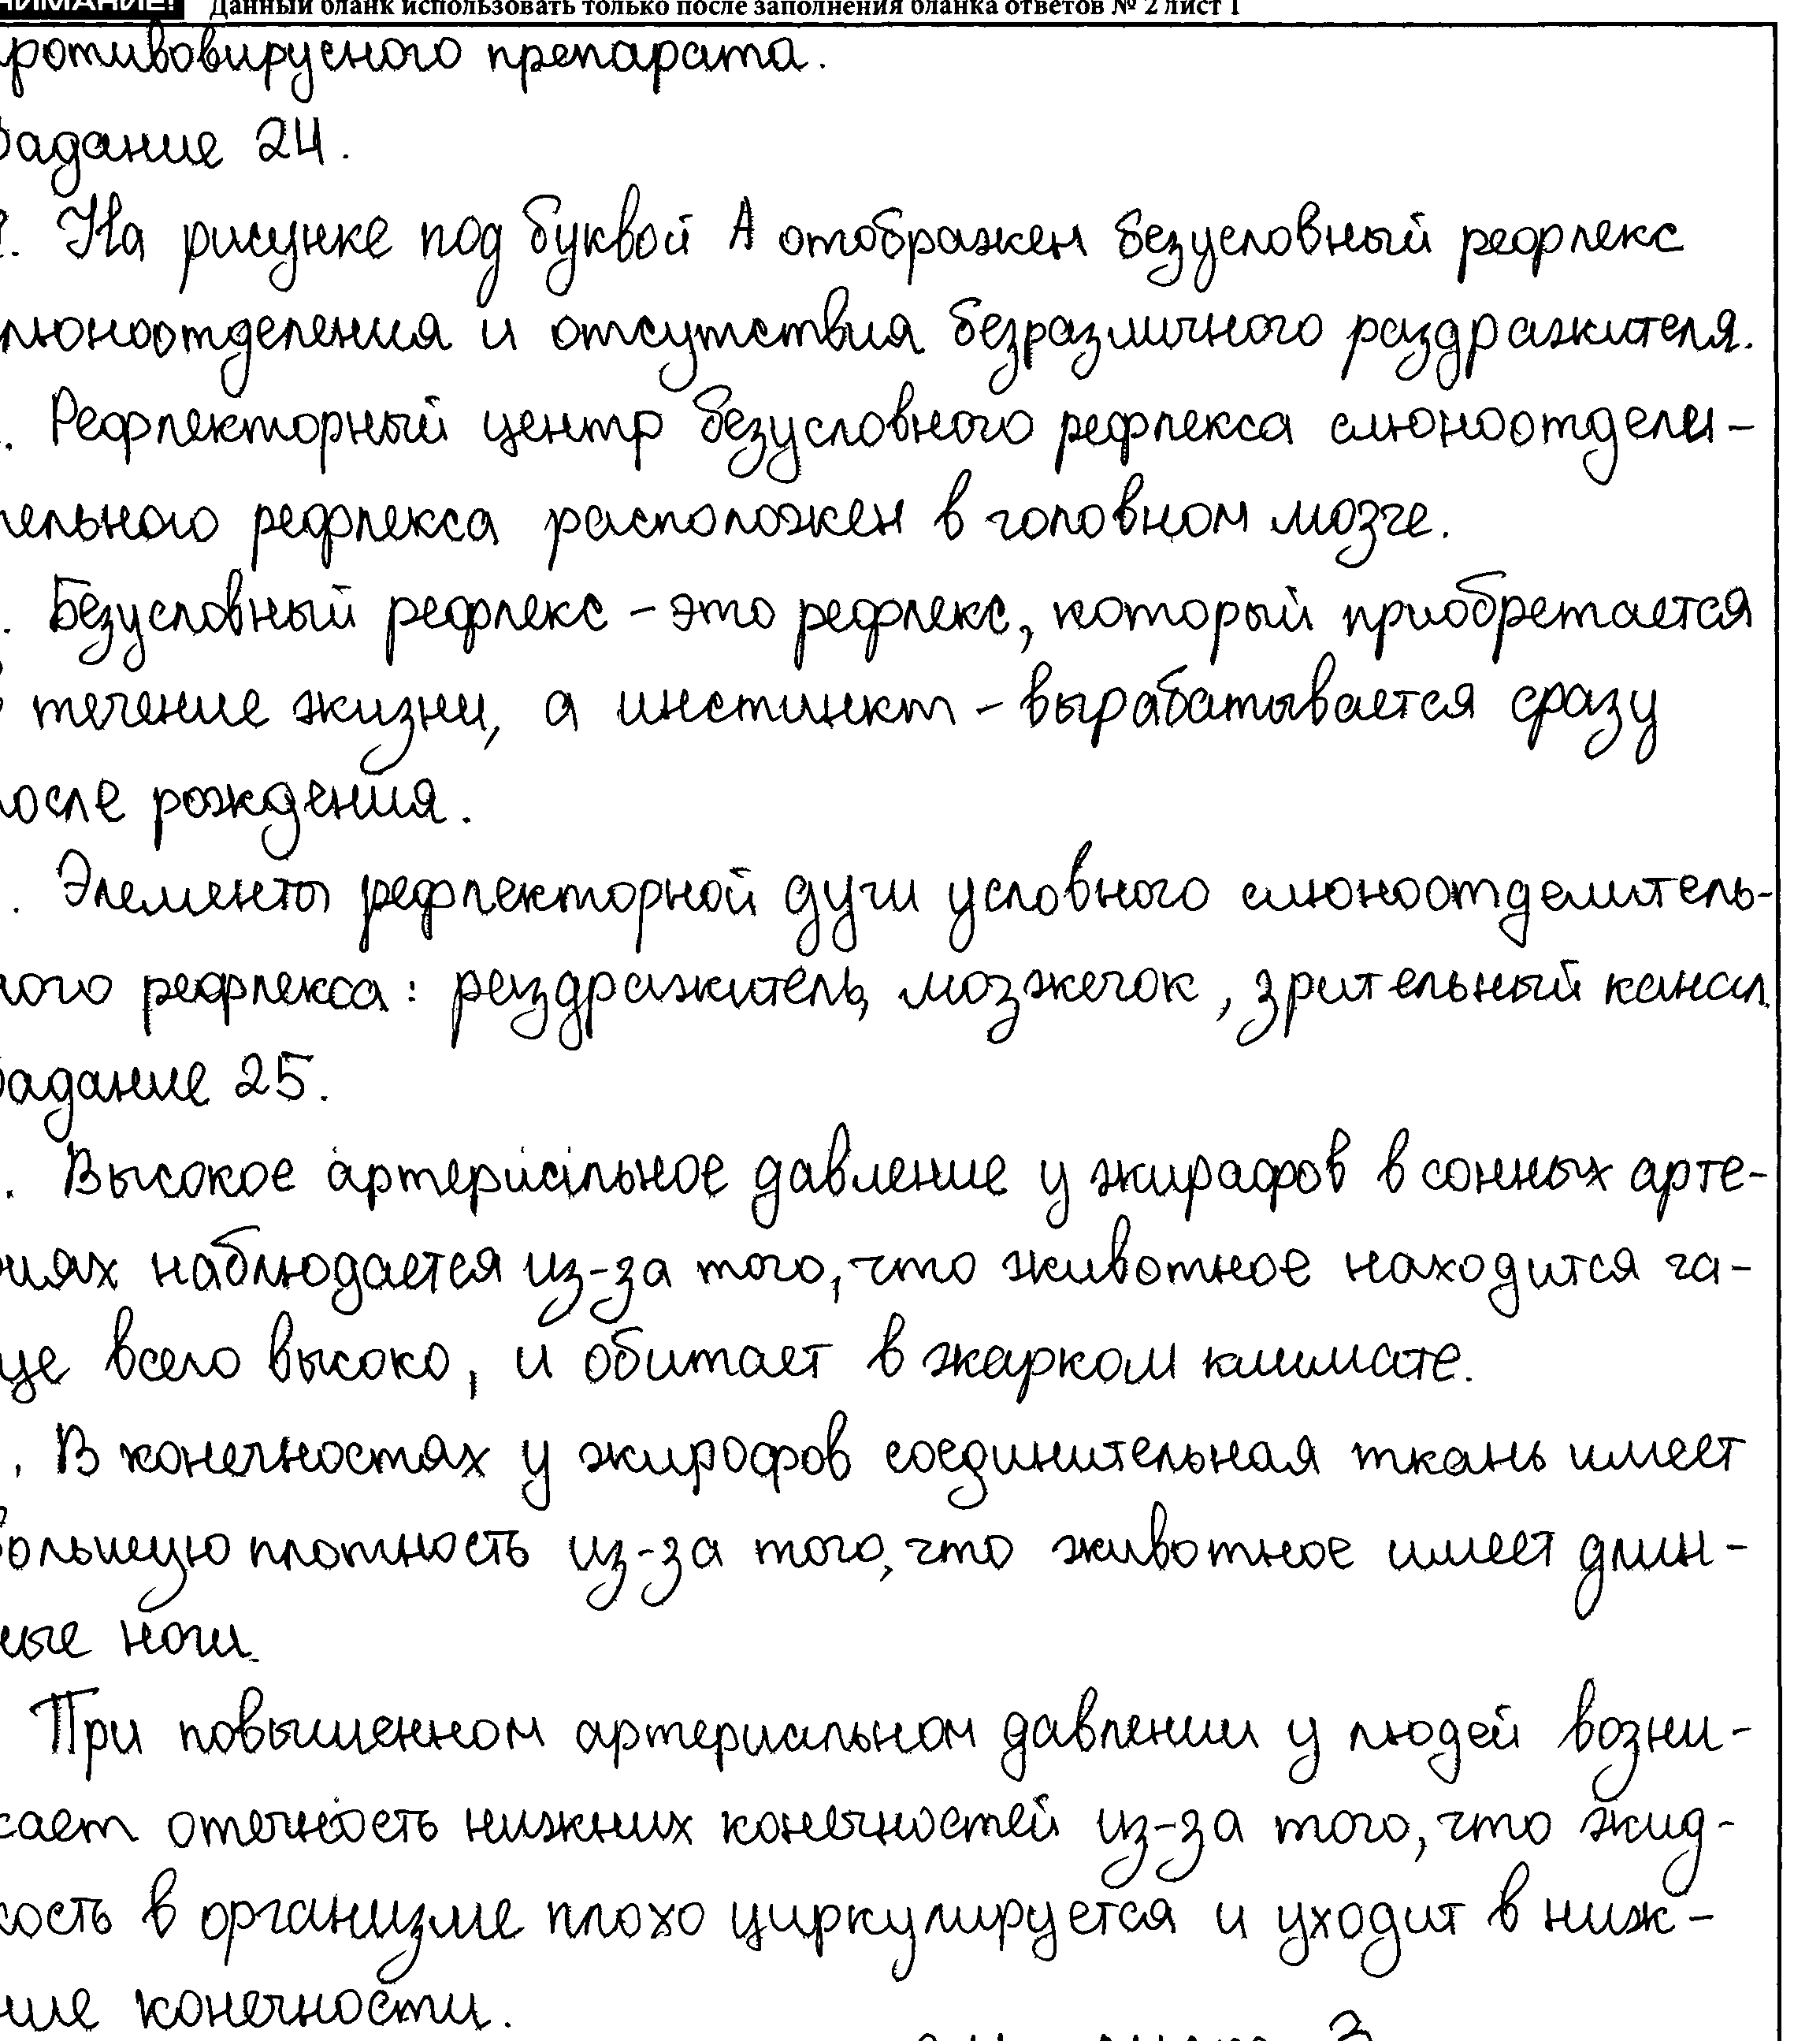 НИМАНИЕ! Данный бланк использовать только после заполнения бланка ответов № 2 лист 1
ротивовирусного препарата.
адание 24.
. На рисунке под буквой А отображен безусловный рефлекс
люноотделения и отсутствия безразличного раздражителя.
. Рефлекторный центр безусловного рефлекса слюноотдели-
тельного рефлекса расположен в головном мозге.
. Безусловный рефлекс – это рефлекс, который приобретается
в течение жизни, а инстинкт – вырабатывается сразу
осле рождения.
. Элементы рефлекторной дуги условного слюноотделитель-
ного рефлекса: раздражитель, мозжечок, зрительный канал.
Задание 25.
. Высокое артериальное давление у жирафов в сонных арте-
иях наблюдается из-за того, что животное находится ча-
ще всего высоко, и обитает в жарком климате.
. В конечностях у жирофов соединительная ткань имеет
большую плотность из-за того, что животное имеет длин-
ные ноги.
При повышенном артериальном давлении у людей возни-
кает отечность нижних конечностей из-за того, что жид-
кость в организме плохо циркулируется и уходит в ниж-
ние конечности.